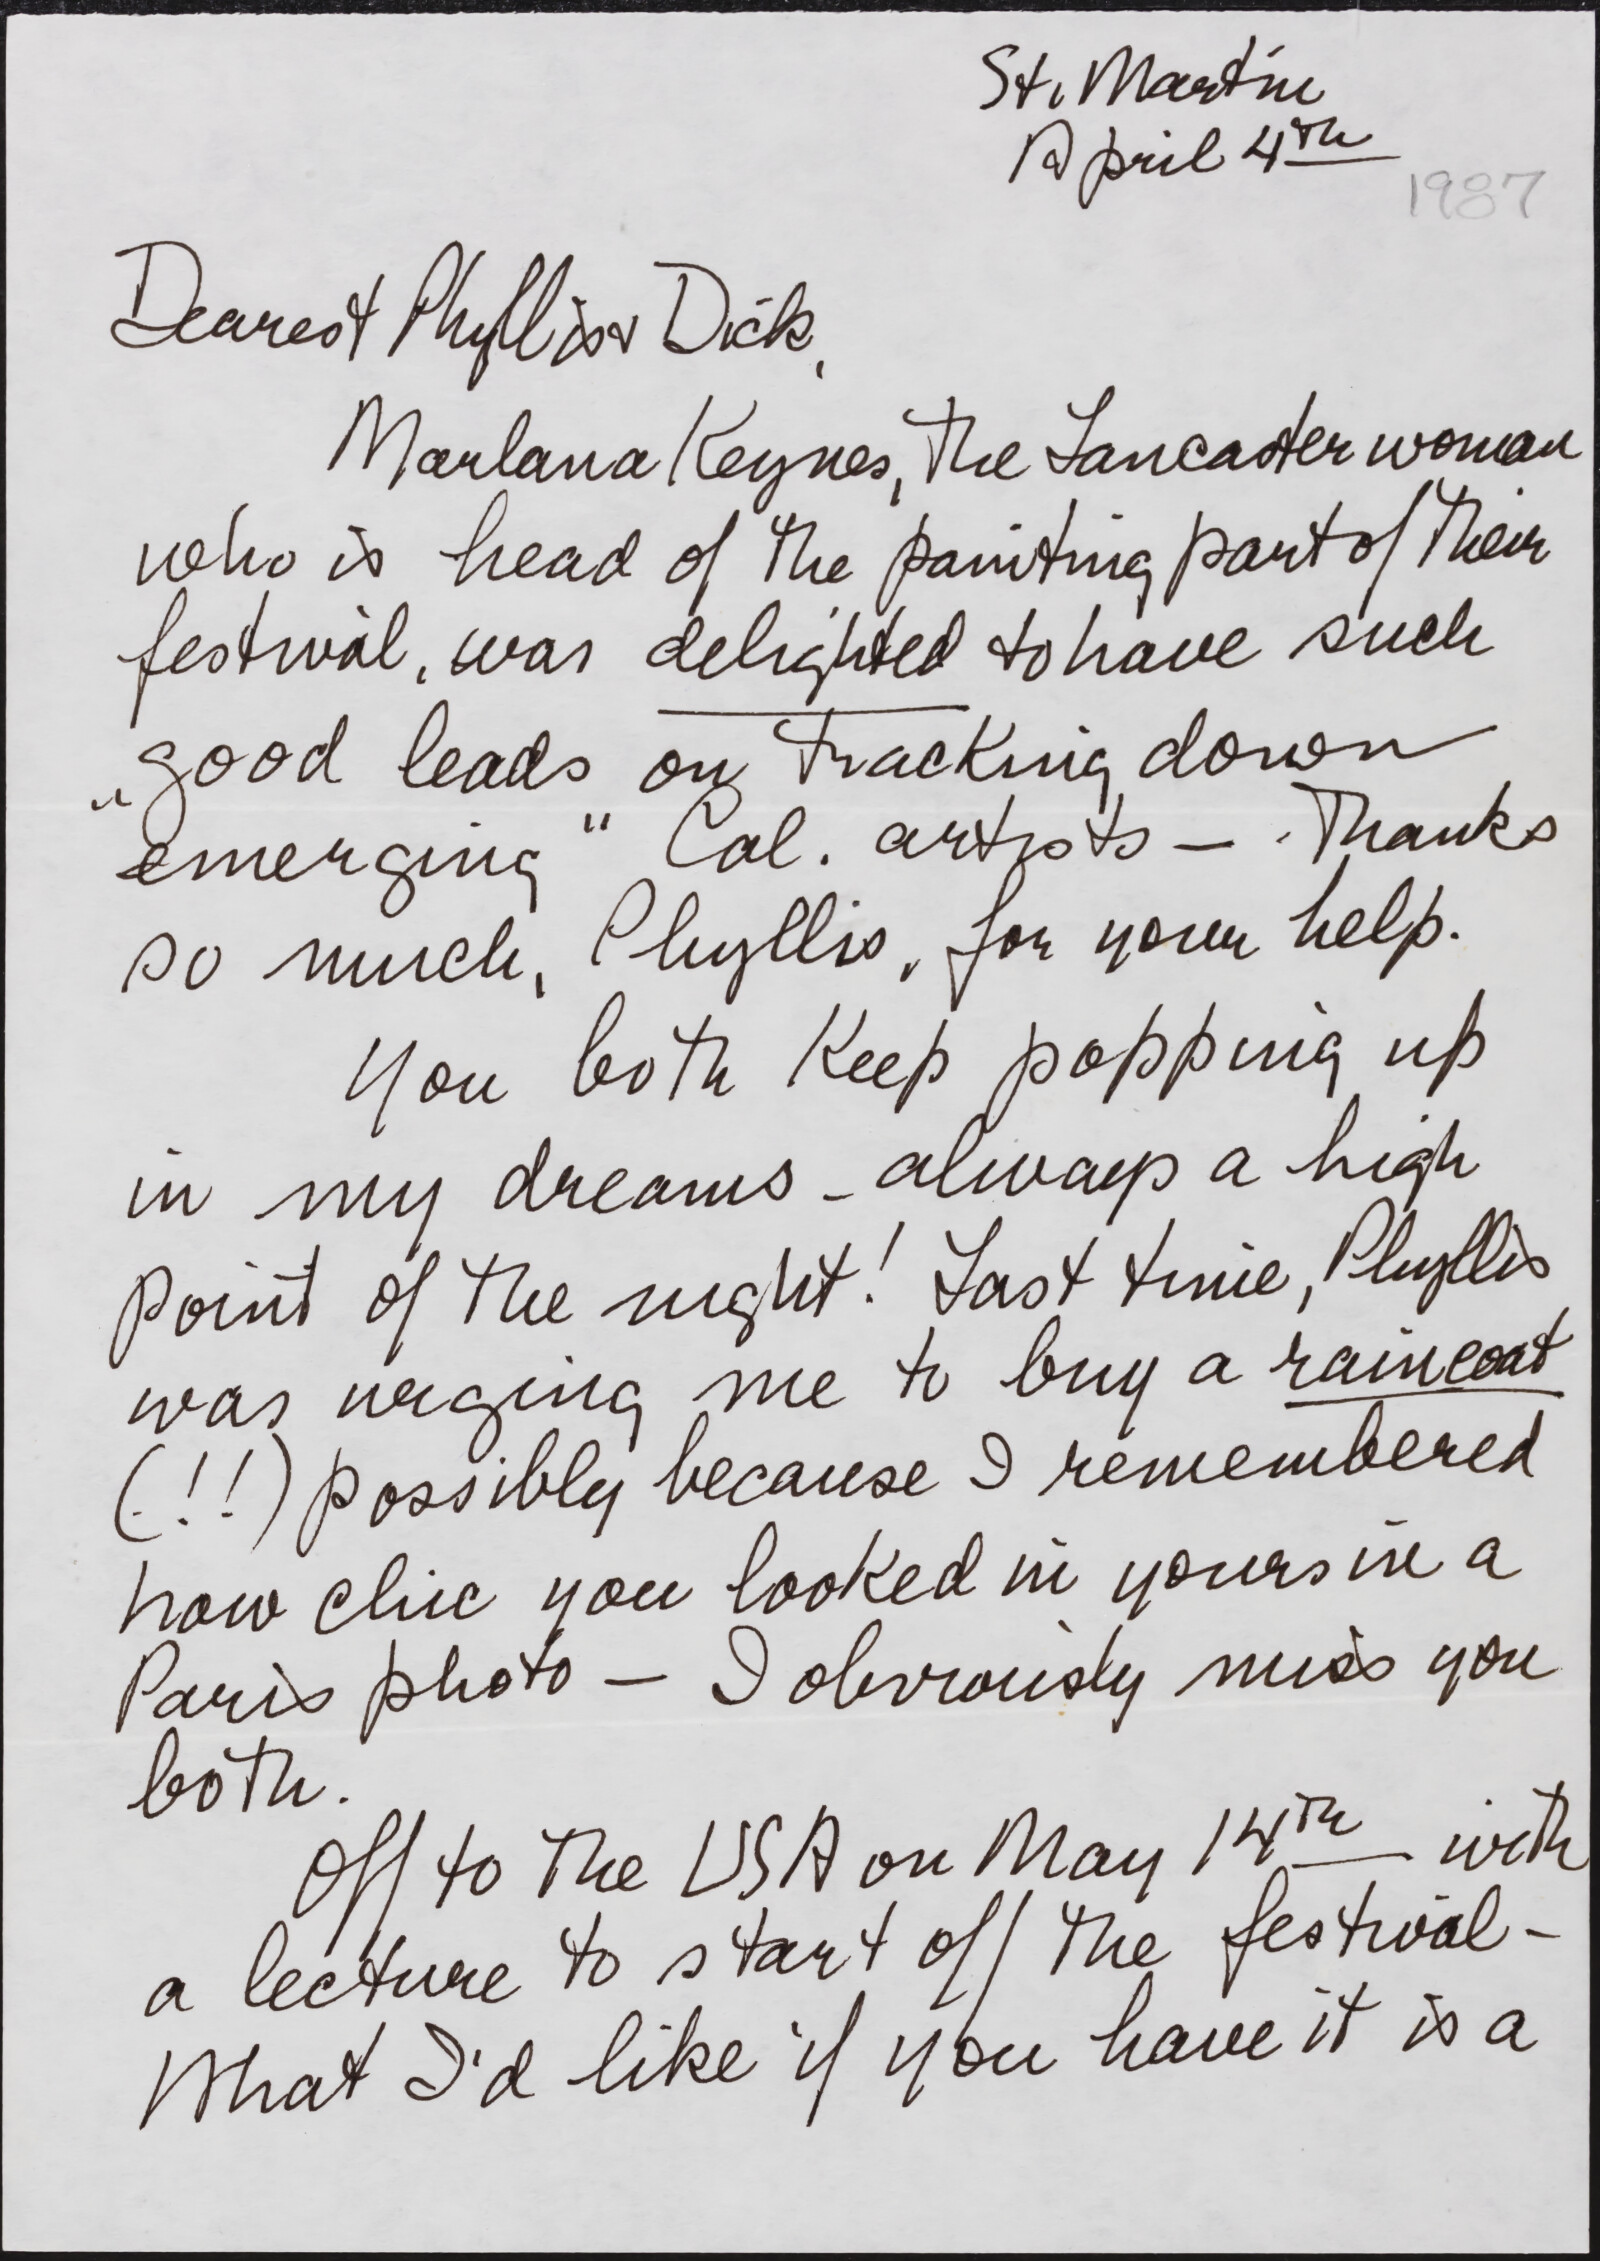 St. Martin
April 4th
1987
Dearest Phyllis & Dick,
Marlana Keynes, the Lancaster woman
who is head of the painting part of their
festival, was delighted to have such
good leads on tracking down
"emerging" Cal. artists — Thanks
so much, Phyllis, for your help.
You both keep popping up
in my dreams - always a high
point of the night! Last time, Phyllis
was urging me to buy a raincoat
(!!!) possibly because I remembered
how chic you looked in yours in a
Paris photo — I obviously miss you
both.
Off to the USA on May 14th with
a lecture to start off the festival -
What I'd like if you have it is a